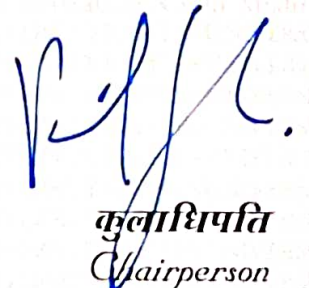 कुलाधिपति
Chairperson